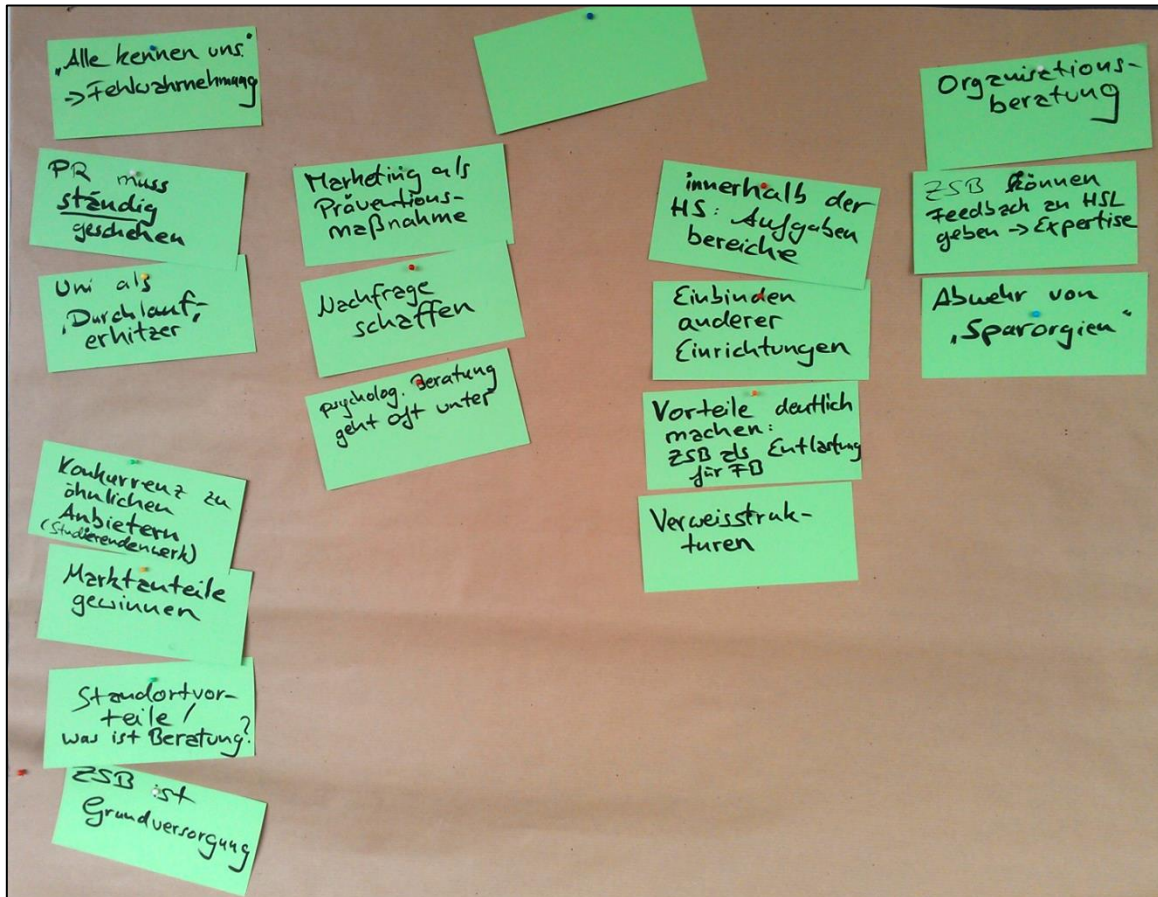 „Alle kennen uns."
-> Fehlwahrnehmung
PR muss
ständig
geschehen
Uni als
„Durchlauf-
erhitzer"
Konkurrenz zu
ähnlichen
Anbietern
(Studierendenwerk)
Marktanteile
gewinnen
Standortvor-
teile /
was ist Beratung?
ZSB ist
Grundversorgung
Marketing als
Präventions-
maßnahme
Nachfrage
schaffen
psycholog. Beratung
geht oft unter
innerhalb der
HS: Aufgaben
bereiche
Einbinden
anderer
Einrichtungen
Vorteile deutlich
machen:
ZSB als Entlastung
für FB
Verweisstruk-
turen
Organisations-
beratung
ZSB können
Feedback an HSL
geben -> Expertise
Abwehr von
„Sparorgien"